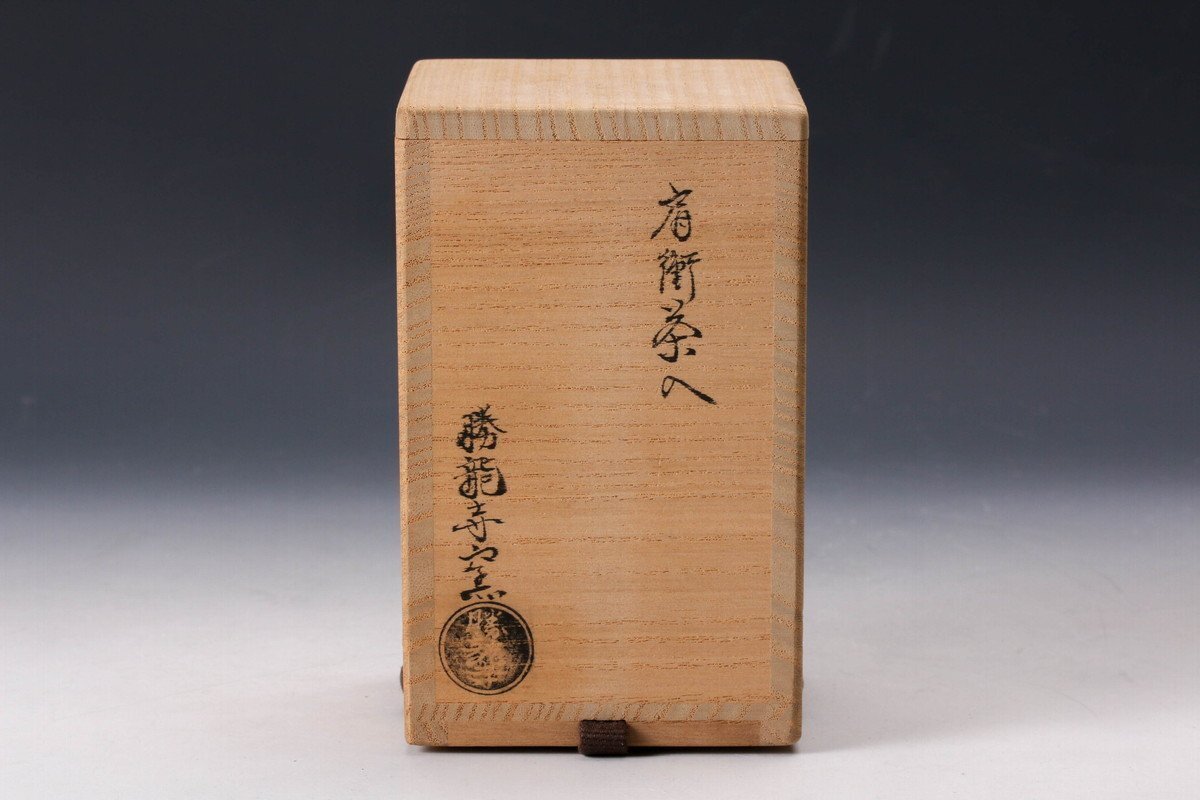 肩衝茶入
勝龍寺窯